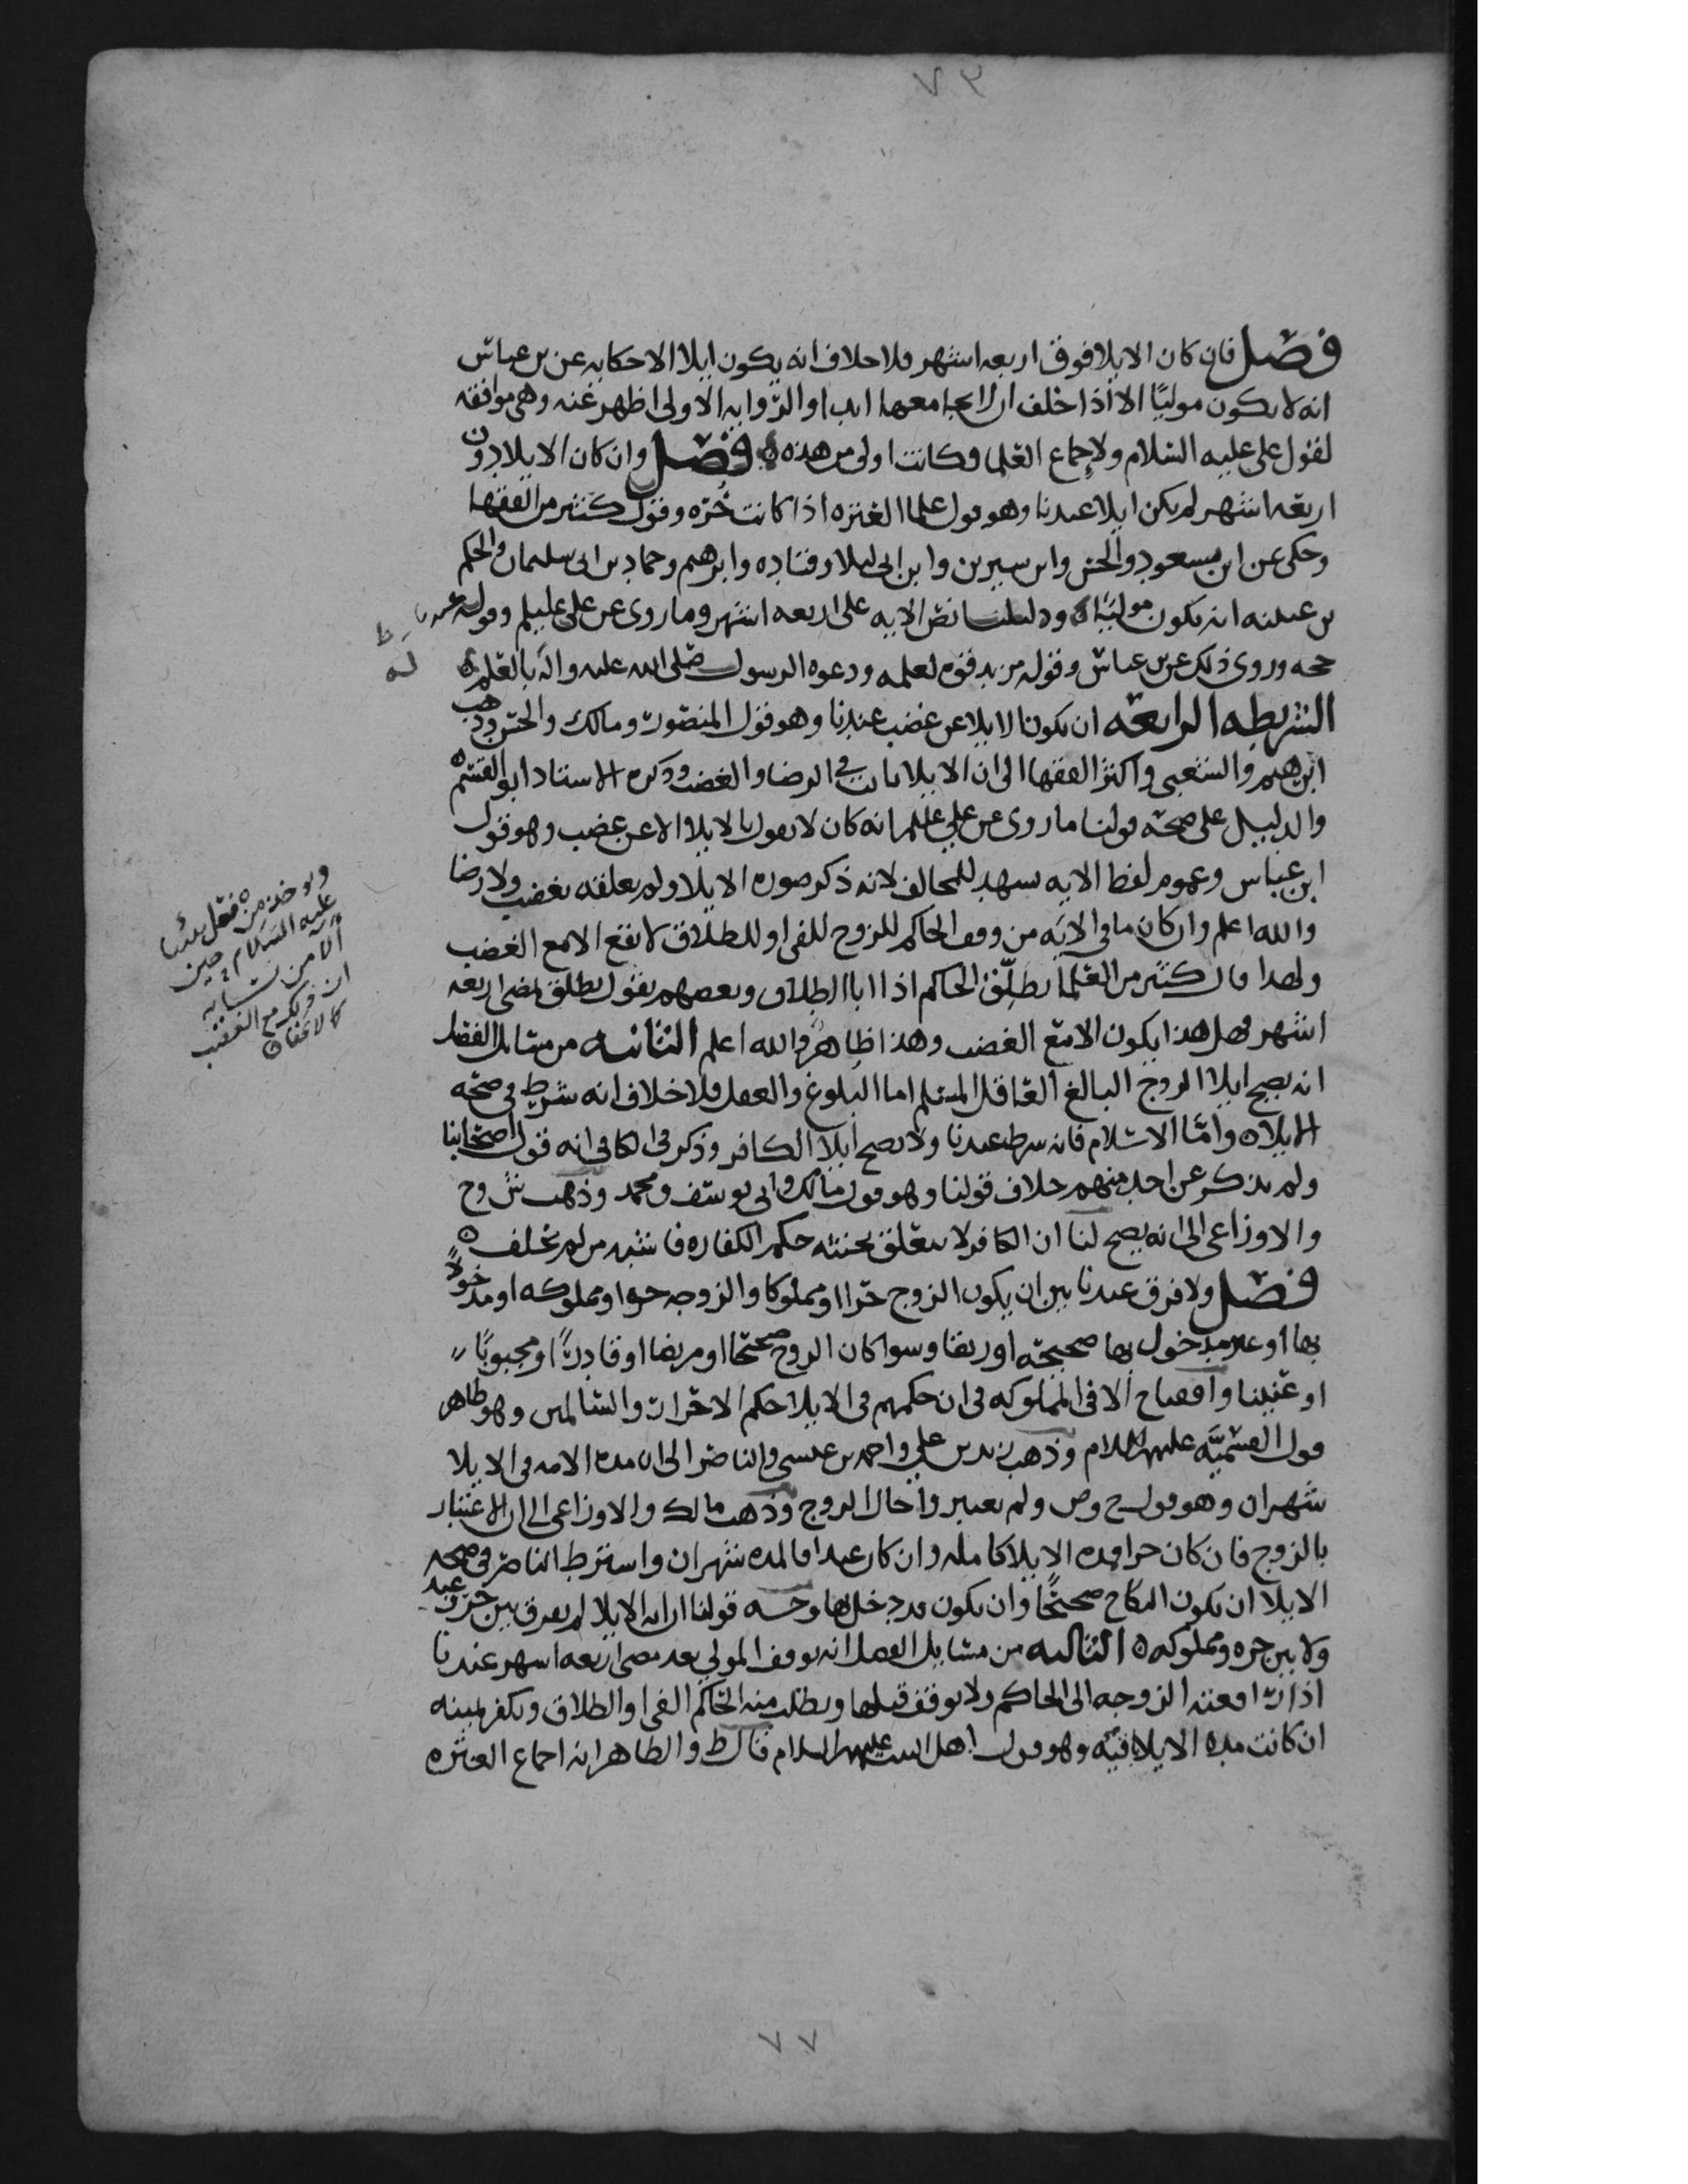 ٧٣
فصل فان كان الايلا فوق اربعه اشهر فلا خلاف انه يكون ايلا الا حكايه عن بن عباس
انه لا يكون موليًا الا اذا حلف ان لا يجامعها ابدا والروايه الاولى اظهر عنه وهي موافقه
لقول علي عليه السلام ولاجماع العلما فكانت اولى من هذه فصل وان كان الايلا دون
اربعه اشهر لم يكن ايلا عندنا وهو قول علما العتره اذا كانت حره وقول كثير من الفقها
وحكى عن ابن مسعود والحسن وابن سيرين وابن ابي ليلا وقتاده وابرهيم وحماد بن ابي سليمان والحكم
بن عيينه انه يكون موليًا ودليلنا نص الايه على اربعه اشهر وما روى عن علي عليلم وقوله عندنا
حجه وروى ذلك عن بن عباس وقوله مزيد قوه لعلمه ودعوه الرسول صلى الله عليه واله بالعلم
الشريطه الرابعه ان يكون الايلا عن غضب عندنا وهو قول المنصور ومالك والحسن وذهب
ابرهيم والشعبي واكثر الفقها الى ان الايلا ثابت في الرضا والغضب وذكره الاستاد ابو القسم
والدليل على صحه قولنا ما روى عن علي عليلم انه كان لا يقول بالايلا الا عن غضب وهو قول
ابن عباس وعموم لفظ الايه يشهد للمخالف لانه ذكر صوره الايلا ولم يعلقه بغضب ولا رضا
والله اعلم وان كان ما في الايه من وقف الحاكم للزوج للفي او للطلاق لا يقع الا مع الغضب
ولهذا قال كثير من العلما يطلق الحاكم اذا ابا الطلاق وبعضهم يقول تطلق بمضي اربعه
اشهر فهل هذا يكون الا مع الغضب وهذا ظاهر والله اعلم الثانيه من مسايل الفصل
انه يصح ايلا الزوج البالغ العاقل المسلم اما البلوغ والعقل فلا خلاف انه شرط في صحه
الايلا واما الاسلام فانه شرط عندنا ولا يصح ايلا الكافر وذكر في الكافي انه قول اصحابنا
ولم يذكر عن احد منهم خلاف قولنا وهو قول مالك وابي يوسف ومحمد وذهب ش وح
والاوزاعي الى انه يصح لنا ان الكافر لا يتعلق بحنثه حكم الكفاره فاشبه من لم يحلف
فصل ولا فرق عندنا بين ان يكون الزوج حرا او مملوكا والزوجه حره او مملوكه او مدخولًا
بها او غير مدخول بها صحيحه او رتقا وسوا كان الزوج صحيحًا او مريضا او قادرًا او مجبوبًا
او عنينا الا في المملوكه في ان حكمهم في الايلا حكم الاحرار والسالمين وهو ظاهر
قول القسميه عليهم السلام وذهب زيد بن علي واحمد بن عيسى والناصر الى ان مده الامه في الايلا
شهران وهو قول ح وص ولم يعتبروا حال الزوج وذهب مالك والاوزاعي الى ان الاعتبار
بالزوج فان كان حرا فمده الايلا كامله وان كان عبدا فالمده شهران واشترط الناصر في صحه
الايلا ان يكون النكاح صحيحًا وان يكون قد دخل بها وجه قولنا ان ايه الايلا لم يفرق بين حر وعبد
ولا بين حره ومملوكه الثالثه من مسايل الفصل انه يوقف المولي بعد مضي اربعه اشهر عندنا
اذا رافعته الزوجه الى الحاكم ولا يوقف قبلها ويطلب منه الحاكم الفي او الطلاق ويكفر ليمينه
ان كانت مده الايلا باقيه وهو قول اهل البيت عليهم السلام قال ط والظاهر انه اجماع العتره
ويوخذ من فعل نبينا
عليه السلام حين
آلا من نسايه
ان ذلك مع الغضب
كما لا يخفا
٧٧